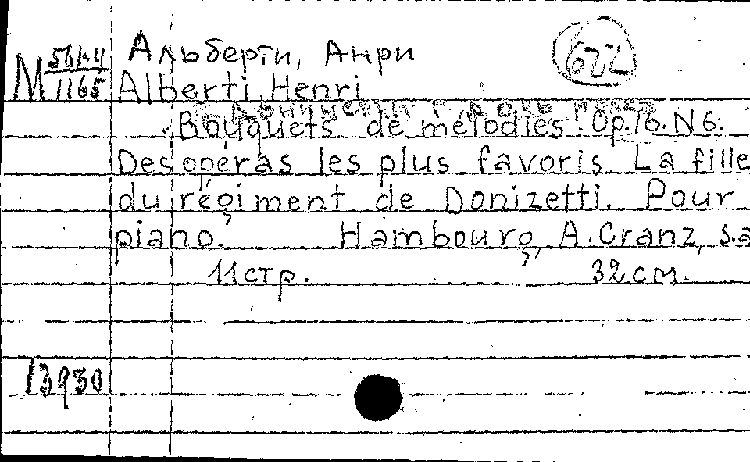 Альберти, Анри 622
M 56174/1165 Alberti Henri
Bouquets de mélodies. Op. 16. N 6.
Des opéras les plus favoris. La fille
du régiment de Donizetti. Pour
piano. Hambourg, A. Cranz, s.a
11 стр. 32 см.
13930